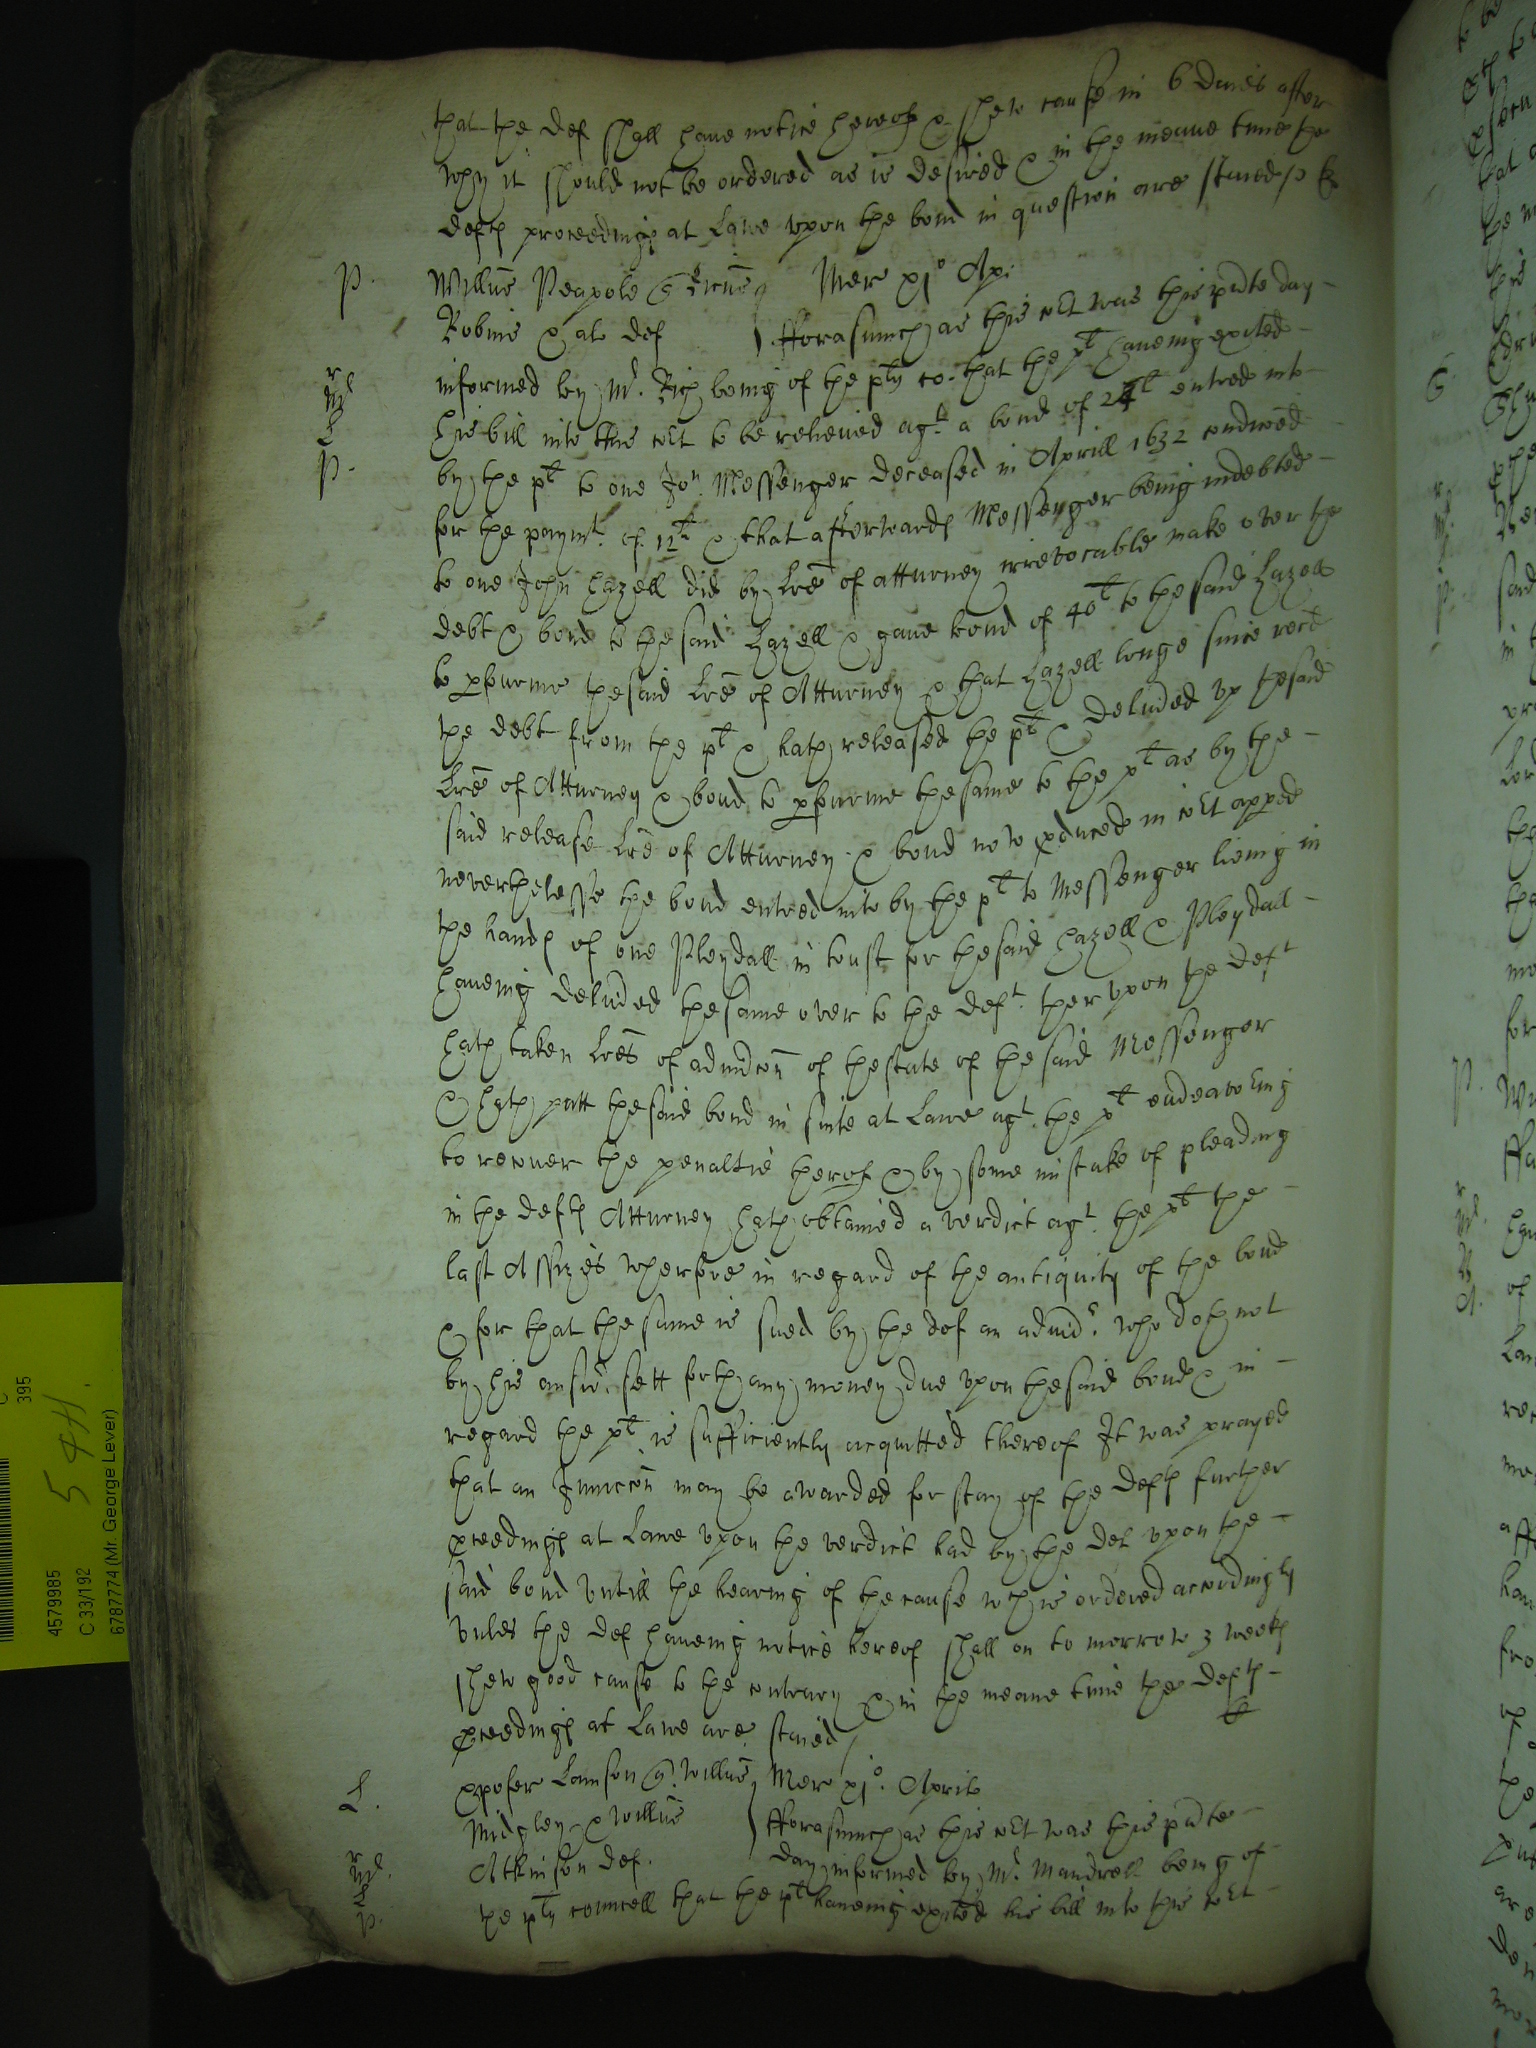 that the def shall have notice hereof & shew cause in 6 daies after
why it should not be ordered as is desired & in the meane time the
defts proceedings at Lawe upon the bond in question are staied
P. Willus Peapole Quer
Robins & al def Mer xjo Apr
fforasmuch as this co^rt was this p^rnte day
informed by Mr. Rich being of the p^lts co. that the p^lt haveing exited
his bill into this co^rt to be releived agt a bond of 24^l entred into
by the p^lt to one Jon. Messenger deceased in Aprill 1632 condiconed
for the paymt. of 12^l & that afterwards Messenger being indebted
to one John Hazell did by Lre of atturney irrevocable make over the
debt & bond to the said Hazell & gave bond of 40^l to the said Hazell
to pfourme the said Lre of Atturney & that Hazell longe since recd
the debt from the p^lt & hath released the p^lt & delived up the said
Lre of Atturney & bond to pfourme the same to the p^lt as by the
said release Lre of Atturney & bond now pduced in co^rt apped
neverthelesse the bond entred into by the p^lt to Messenger lieing in
the hands of one Pleydall in trust for the said Hazell & Pleydall
haveing delived the same over to the deft. therupon the deft
hath taken Lres of admdcon of the state of the said Messenger
& hath putt the said bond in suite at Lawe agt. the p^lt endeavoring
to recover the penaltie therof & by some mistake of pleading
in the defts Atturney hath obtained a verdict agt. the p^lt the
last Assizes wherfore in regard of the antiquity of the bond
& for that the same is sued by the def an admdr. who doth not
by his answ. sett forth any money due upon the said bond & in
regard the p^lt is sufficiently acquitted thereof It was prayed
that an Iniuccon may be awarded for stay of the defts further
pceedings at Lawe upon the verdict had by the def upon the
said bond untill the hearing of the cause wch is ordered accordingly
unles the def haveing notice hereof shall on to morrow 3 weeks
shew good cause to the contrary & in the meane time the defts
pceedings at Lawe are staied
L. Xpofer Lamson q. Willus
Midgley & Willus
Atkinson def. Mer xjo. Aprilis
fforasmuch as this co^rt was this p^rnte
day informed by Mr. Mandrell being of
the p^lts councell that the p^lt haveing exited his bill into this co^rt
395
5 4H.
4579985
C 33/192
6787774 (Mr. George Lever)